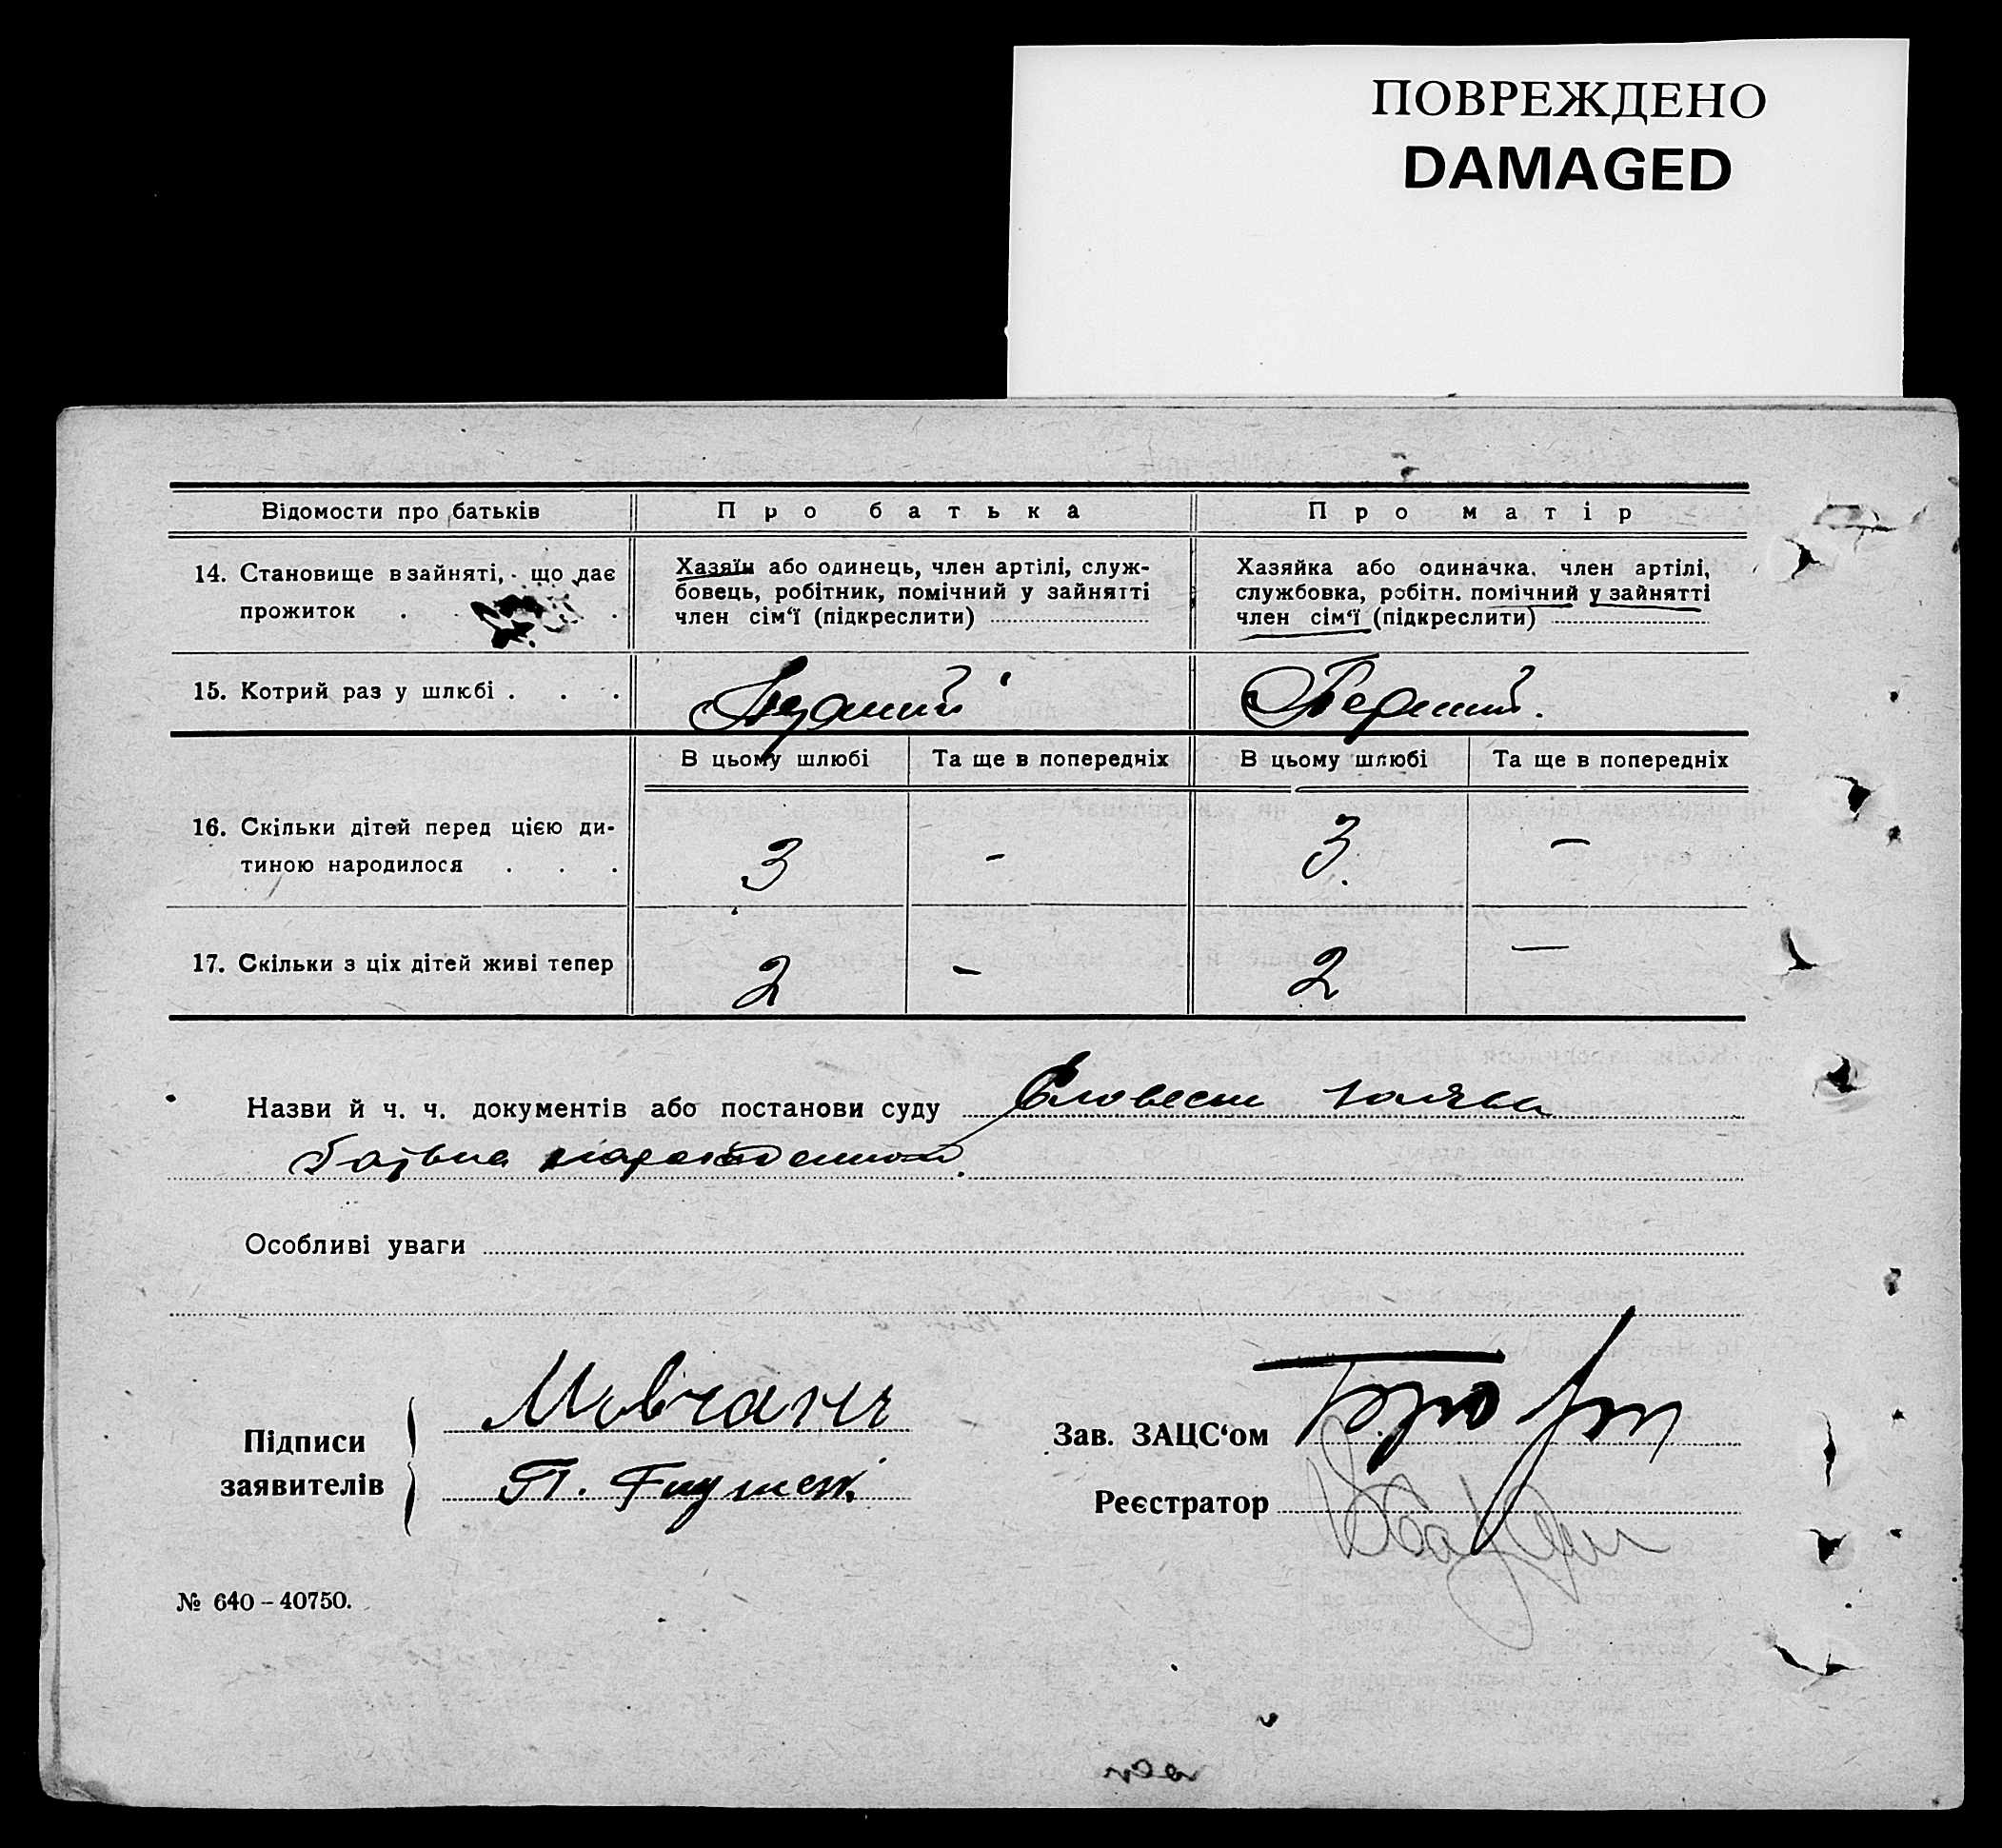 ПОВРЕЖДЕНО
DAMAGED
Відомости про батьків
Про батька
Про матір
14. Становище в зайняті, що дає
прожиток . .
Хазяїн або одинець, член артілі, служ-
бовець, робітник, помічний у зайнятті
член сім‘ї (підкреслити)
Хазяйка або одиначка, член артілі,
службовка, робітн. помічний у зайнятті
член сім‘ї (підкреслити)
15. Котрий раз у шлюбі . . .
Перший
Перший.
В цьому шлюбі
Та ще в попередніх
В цьому шлюбі
Та ще в попередніх
16. Скільки дітей перед цією ди-
тиною народилося . . .
3
-
3
-
17. Скільки з ціх дітей живі тепер
2
-
2
-
Назви й ч. ч. документів або постанови суду Словесна заява
батька
Особливі уваги
Підписи
заявителів
Мовчан
П.
Зав. ЗАЦС‘ом
Реєстратор
№ 640 – 40750.